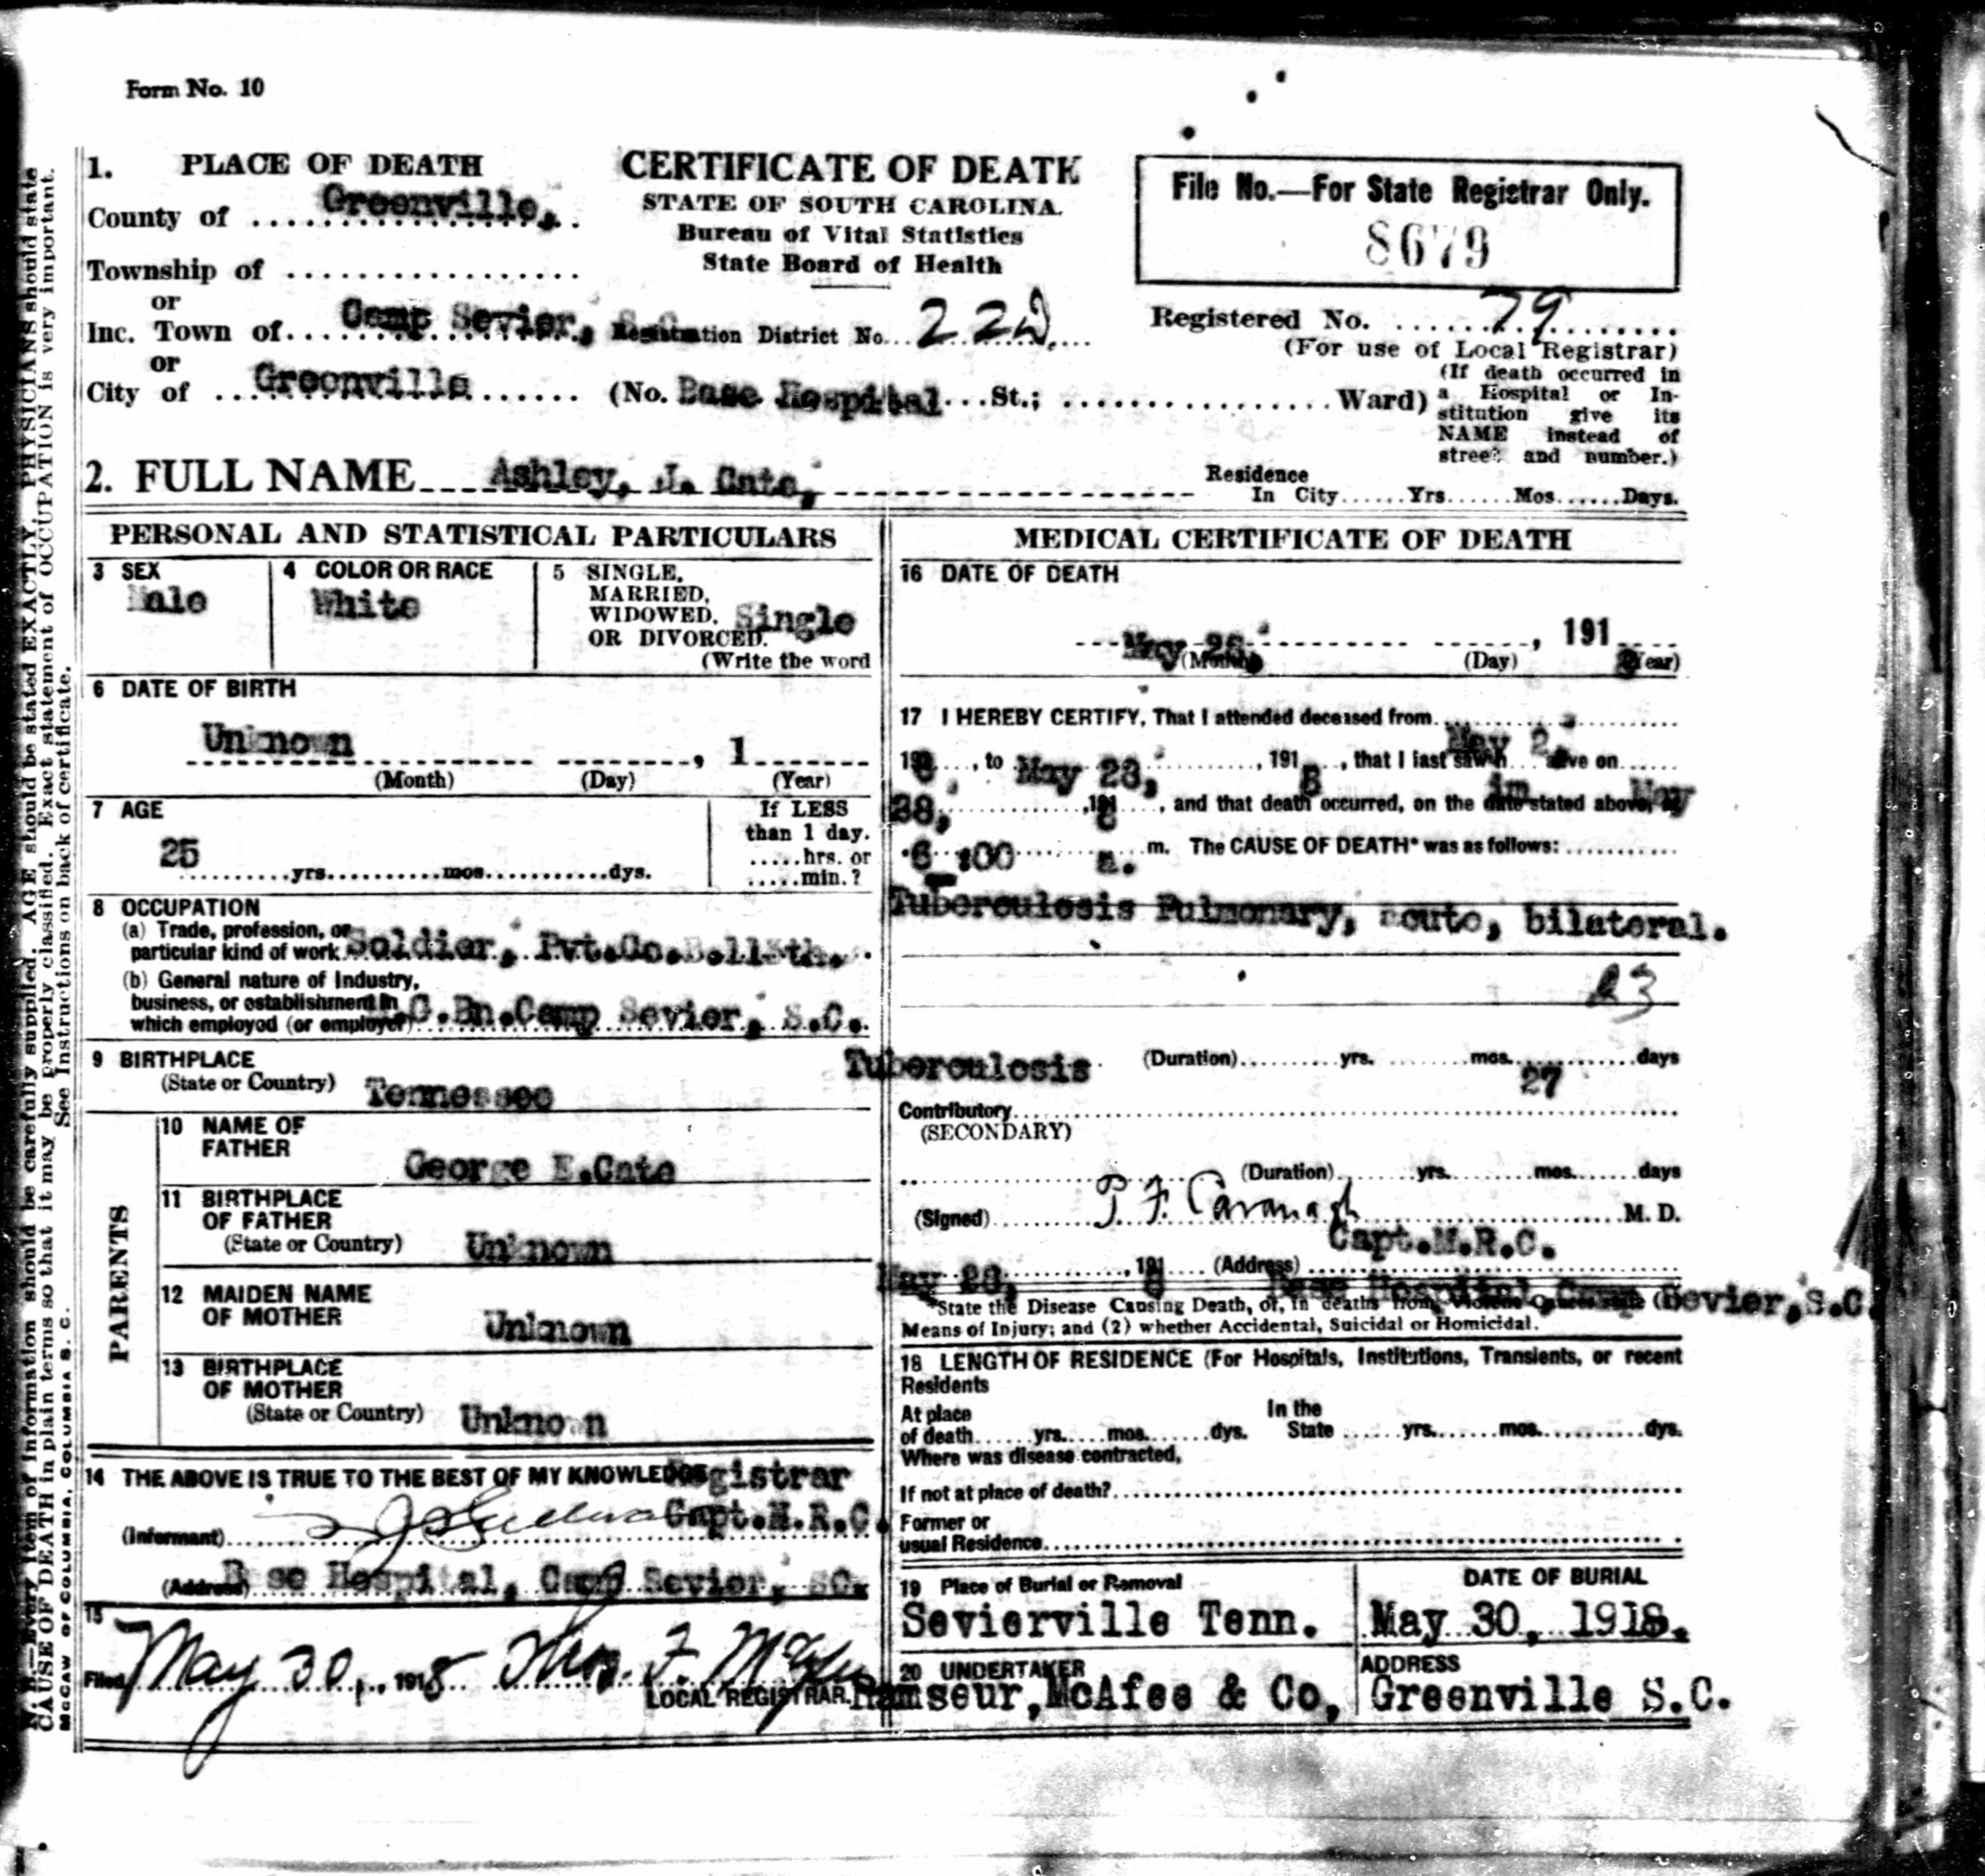 Form No. 10
1. PLACE OF DEATH
County of Greenville,
Township of
or
Inc. Town of Camp Sevier, S.C.
or
City of Greenville
CERTIFICATE OF DEATH
STATE OF SOUTH CAROLINA.
Bureau of Vital Statistics
State Board of Health
Registration District No. 22
(No. Base Hospital St.; Ward)
File No.—For State Registrar Only.
8679
Registered No. 79
(For use of Local Registrar)
(If death occurred in
a Hospital or In-
stitution give its
NAME instead of
street and number.)
2. FULL NAME Ashley, J. Cate,
Residence
In City Yrs Mos Days.
PERSONAL AND STATISTICAL PARTICULARS
3 SEX
Male
4 COLOR OR RACE
White
5 SINGLE,
MARRIED,
WIDOWED,
OR DIVORCED. Single
(Write the word
6 DATE OF BIRTH
Unknown , 1
(Month) (Day) (Year)
7 AGE
25 yrs. mos. dys.
If LESS
than 1 day.
hrs. or
min.?
8 OCCUPATION
(a) Trade, profession, or
particular kind of work Soldier, Pvt.Co.
(b) General nature of Industry,
business, or establishment in
which employed (or employer) G.Bn.Camp Sevier, S.C.
9 BIRTHPLACE
(State or Country) Tennessee
PARENTS
10 NAME OF
FATHER
George E.Cate
11 BIRTHPLACE
OF FATHER
(State or Country) Unknown
12 MAIDEN NAME
OF MOTHER
Unknown
13 BIRTHPLACE
OF MOTHER
(State or Country) Unknown
14 THE ABOVE IS TRUE TO THE BEST OF MY KNOWLEDGE
Registrar
(Informant) Capt.M.R.C.
(Address) Base Hospital, Camp Sevier, SC.
15
Filed May 30, 1918 Thos. F.
LOCAL REGISTRAR.
MEDICAL CERTIFICATE OF DEATH
16 DATE OF DEATH
May 28 , 191 8
(Month) (Day) (Year)
17 I HEREBY CERTIFY, That I attended deceased from May 2,
1918, to May 28, 1918, that I last saw him alive on May
28, 1918, and that death occurred, on the date stated above, at
6:00 a. m. The CAUSE OF DEATH* was as follows:
Tuberculosis Pulmonary, acute, bilateral.
Tuberculosis (Duration) yrs. mos. 27 days
Contributory
(SECONDARY)
(Duration) yrs. mos. days
(Signed) P. F. Cavanagh M. D.
Capt.M.R.C.
May 28, 1918 (Address) Base Hospital Camp Sevier, S.C.
*State the Disease Causing Death, or, in deaths from Violent Causes state
Means of Injury; and (2) whether Accidental, Suicidal or Homicidal.
18 LENGTH OF RESIDENCE (For Hospitals, Institutions, Transients, or recent
Residents
At place
of death yrs. mos. dys.
In the
State yrs. mos. dys.
Where was disease contracted,
If not at place of death?
Former or
usual Residence
19 Place of Burial or Removal
Sevierville Tenn.
DATE OF BURIAL
May 30, 1918.
20 UNDERTAKER
Ramseur, McAfee & Co,
ADDRESS
Greenville S.C.
N. B.—Every item of information should be carefully supplied. AGE should be stated EXACTLY. PHYSICIANS should state
CAUSE OF DEATH in plain terms so that it may be properly classified. Exact statement of OCCUPATION is very important.
See Instructions on back of certificate.
McCAW OF COLUMBIA, COLUMBIA S. C.